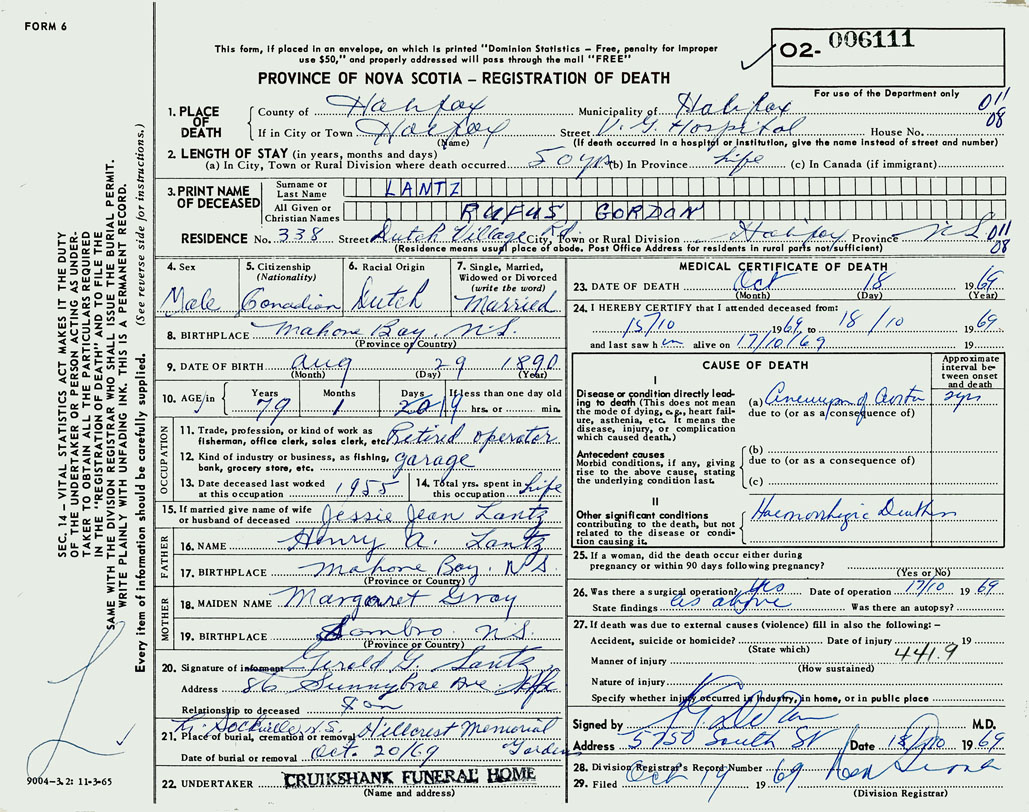 FORM 6
This form, if placed in an envelope, on which is printed "Dominion Statistics – Free, penalty for improper
use $50," and properly addressed will pass through the mail "FREE"
02- 006111
For use of the Department only
PROVINCE OF NOVA SCOTIA – REGISTRATION OF DEATH
011
08
1. PLACE OF DEATH
County of Halifax Municipality of Halifax
If in City or Town Halifax Street V. G. Hospital House No.
(Name) (If death occurred in a hospital or institution, give the name instead of street and number)
2. LENGTH OF STAY (in years, months and days)
(a) In City, Town or Rural Division where death occurred 50 yrs (b) In Province Life (c) In Canada (if immigrant)
3. PRINT NAME OF DECEASED
Surname or Last Name LANTZ
All Given or Christian Names RUFUS GORDON
RESIDENCE No. 338 Street Dutch Village Rd. City, Town or Rural Division Halifax Province N S 011
08
(Residence means usual place of abode. Post Office Address for residents in rural parts not sufficient)
4. Sex Male
5. Citizenship (Nationality) Canadian
6. Racial Origin Dutch
7. Single, Married, Widowed or Divorced (write the word) Married
8. BIRTHPLACE Mahone Bay, N.S.
(Province or Country)
9. DATE OF BIRTH Aug 29 1890
(Month) (Day) (Year)
10. AGE in Years 79 Months 1 Days 20 19 If less than one day old hrs. or min.
OCCUPATION
11. Trade, profession, or kind of work as fisherman, office clerk, sales clerk, etc. Retired operator
12. Kind of industry or business, as fishing, bank, grocery store, etc. garage
13. Date deceased last worked at this occupation 1955
14. Total yrs. spent in this occupation Life
15. If married give name of wife or husband of deceased Jessie Jean Lantz
FATHER
16. NAME Henry A. Lantz
17. BIRTHPLACE Mahone Bay. N S
(Province or Country)
MOTHER
18. MAIDEN NAME Margaret Gray
19. BIRTHPLACE Sambro N.S.
(Province or Country)
20. Signature of informant Gerald G. Lantz
Address 86 Sunnybrae Ave Hfx
Relationship to deceased Son
Sackville N.S. Hillcrest Memorial
21. Place of burial, cremation or removal Gardens
Date of burial or removal Oct. 20/69
22. UNDERTAKER CRUIKSHANK FUNERAL HOME
(Name and address)
MEDICAL CERTIFICATE OF DEATH
23. DATE OF DEATH Oct 18 1969
(Month) (Day) (Year)
24. I HEREBY CERTIFY that I attended deceased from:
15/10 1969 to 18/10 1969
and last saw him alive on 17/10/69 19
CAUSE OF DEATH
Approximate interval between onset and death
I
Disease or condition directly leading to death (This does not mean the mode of dying, e.g., heart failure, asthenia, etc. It means the disease, injury, or complication which caused death.)
(a) Aneurysm of Aorta 2yrs
due to (or as a consequence of)
Antecedent causes
Morbid conditions, if any, giving rise to the above cause, stating the underlying condition last.
(b)
due to (or as a consequence of)
(c)
II
Other significant conditions contributing to the death, but not related to the disease or condition causing it.
Haemorrhagic
25. If a woman, did the death occur either during pregnancy or within 90 days following pregnancy?
(Yes or No)
26. Was there a surgical operation? Yes Date of operation 17/10 1969
State findings as above Was there an autopsy?
27. If death was due to external causes (violence) fill in also the following: –
Accident, suicide or homicide? Date of injury 19
(State which)
441.9
Manner of injury
(How sustained)
Nature of injury
Specify whether injury occurred in industry, in home, or in public place
Signed by M.D.
Address 5750 South St Date 18/10 1969
28. Division Registrar's Record Number
29. Filed Oct 19 1969
(Division Registrar)
SEC. 14 – VITAL STATISTICS ACT MAKES IT THE DUTY
OF THE UNDERTAKER OR PERSON ACTING AS UNDER-
TAKER TO OBTAIN ALL THE PARTICULARS REQUIRED
IN THE "REGISTRATION OF DEATH" AND TO FILE THE
SAME WITH THE DIVISION REGISTRAR WHO SHALL ISSUE THE BURIAL PERMIT.
WRITE PLAINLY WITH UNFADING INK. THIS IS A PERMANENT RECORD.
Every item of information should be carefully supplied. (See reverse side for instructions.)
9004-3.2: 11-3-65